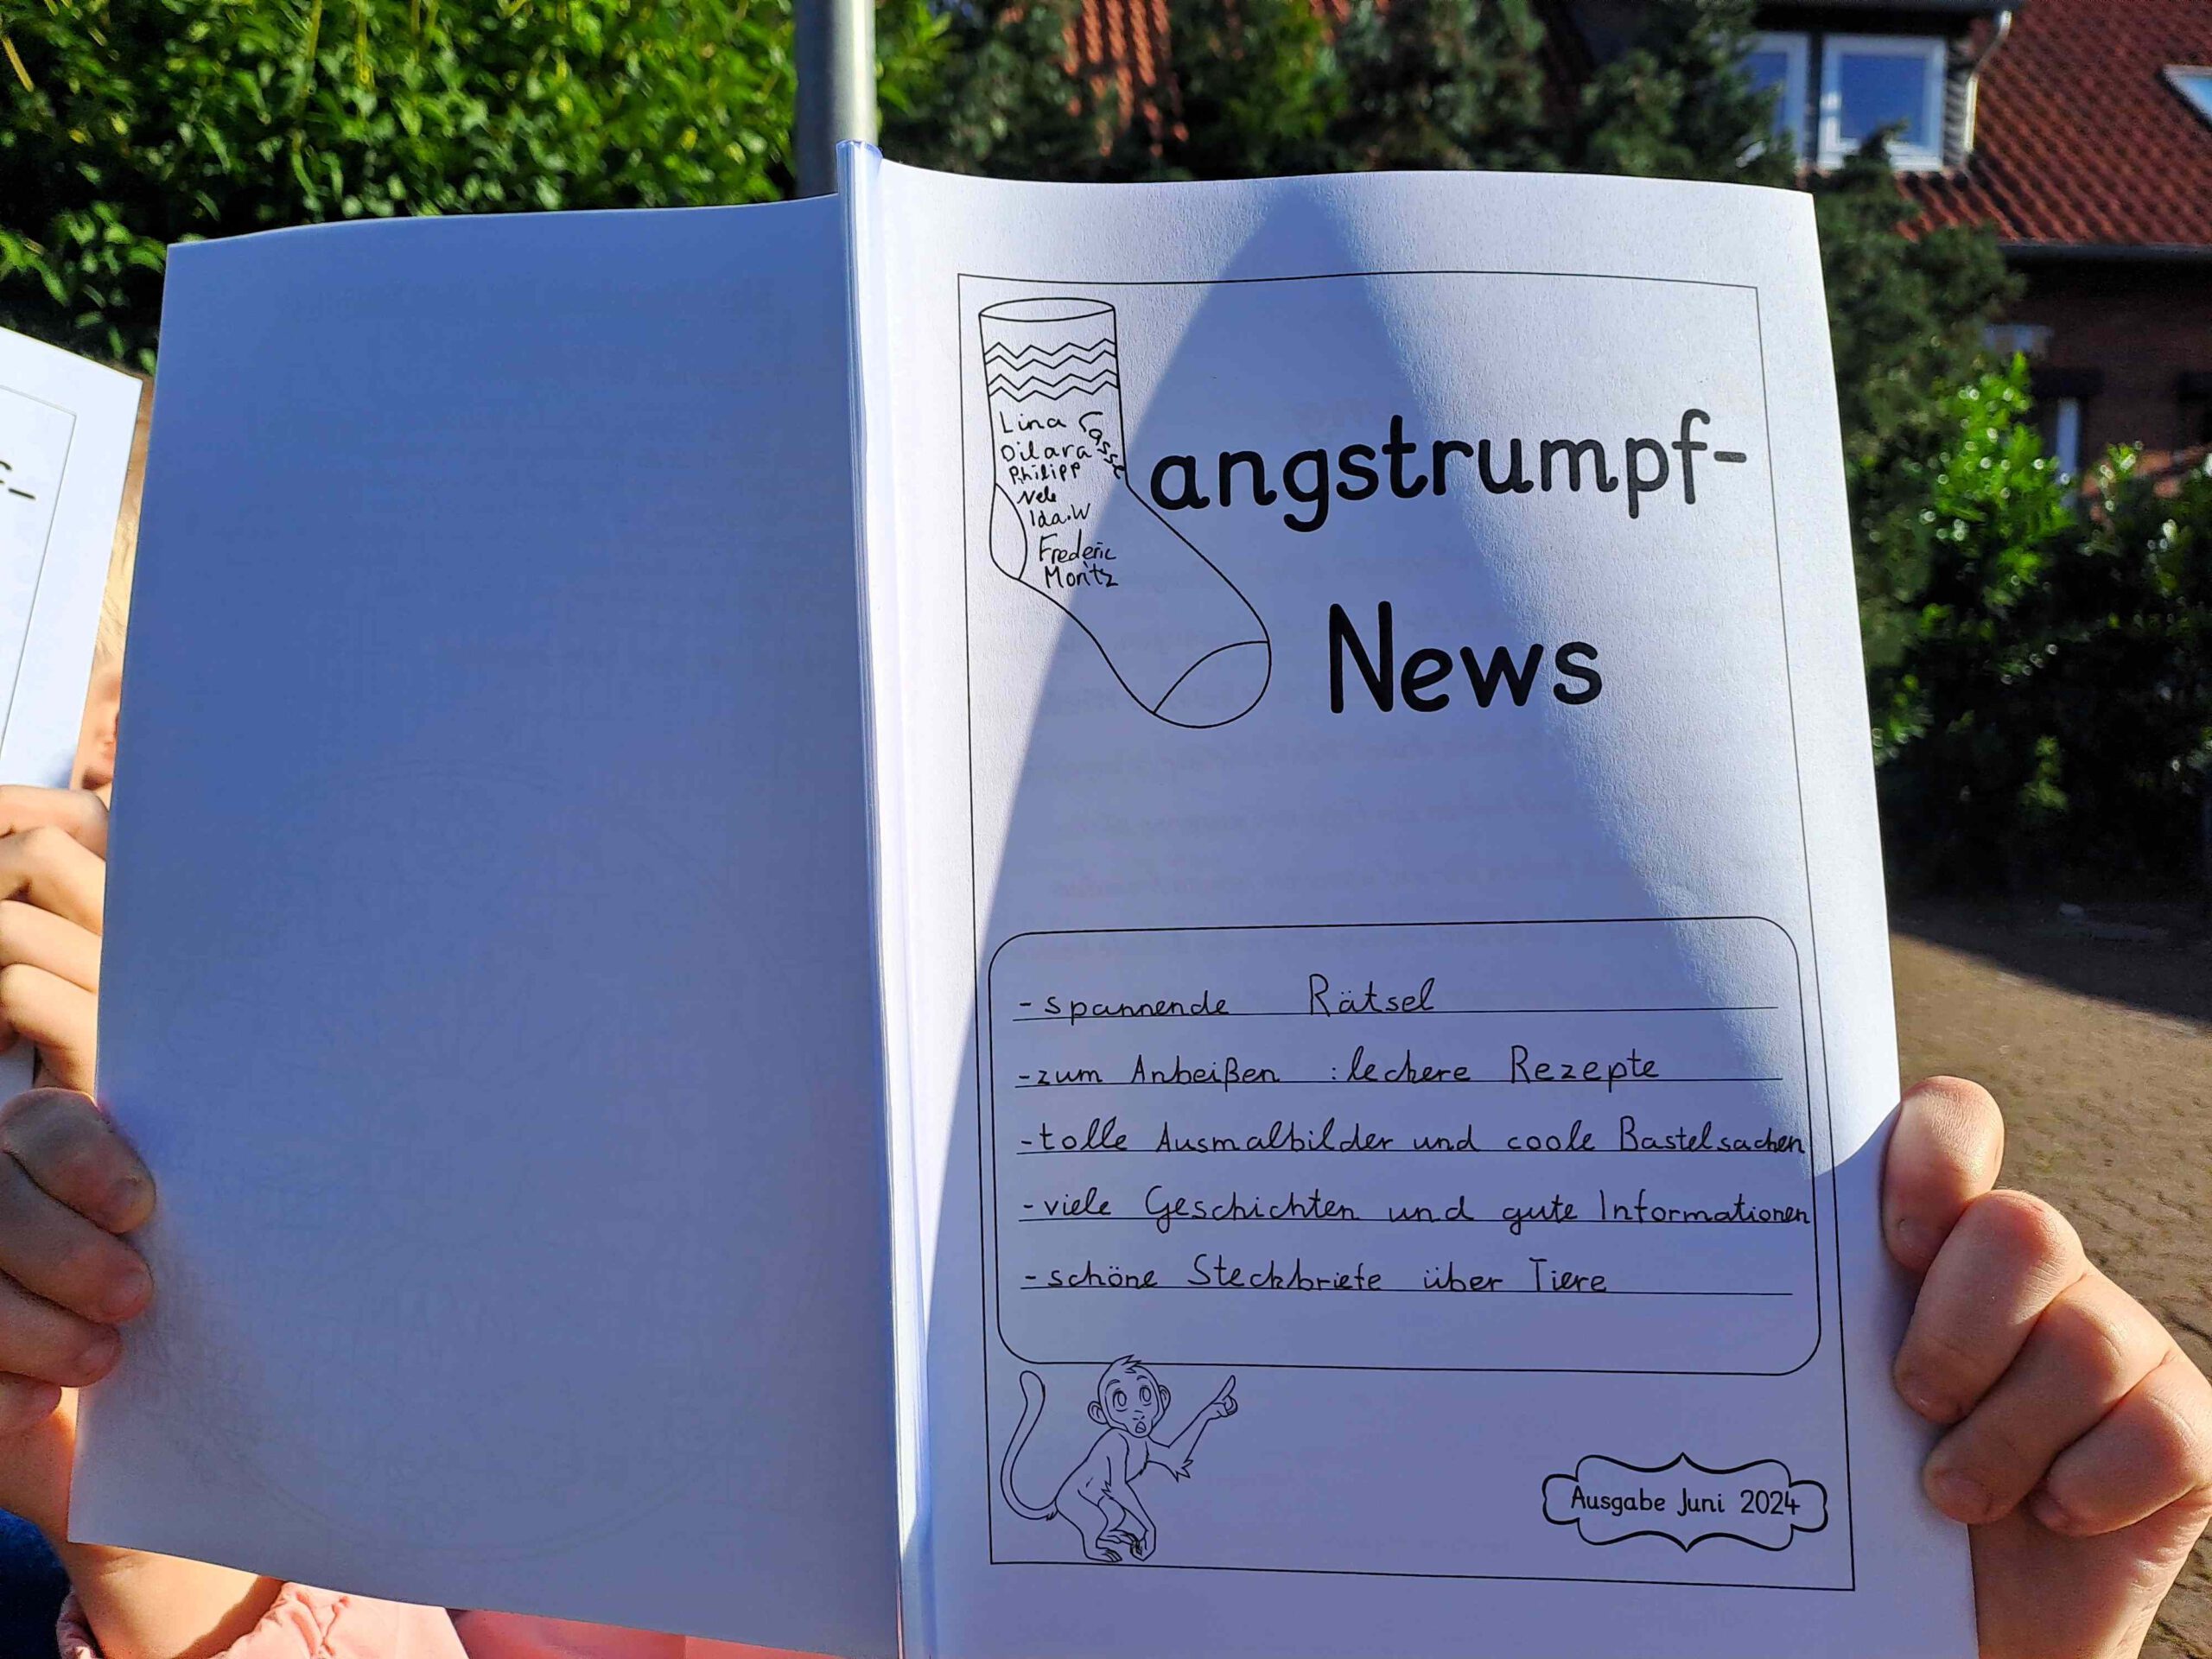 Lina Casse
Dilara
Philipp
Nele
Ida.W
Frederic
Moritz
angstrumpf-
News
- spannende Rätsel
- zum Anbeißen : leckere Rezepte
- tolle Ausmalbilder und coole Bastelsachen
- viele Geschichten und gute Informationen
- schöne Steckbriefe über Tiere
Ausgabe Juni 2024